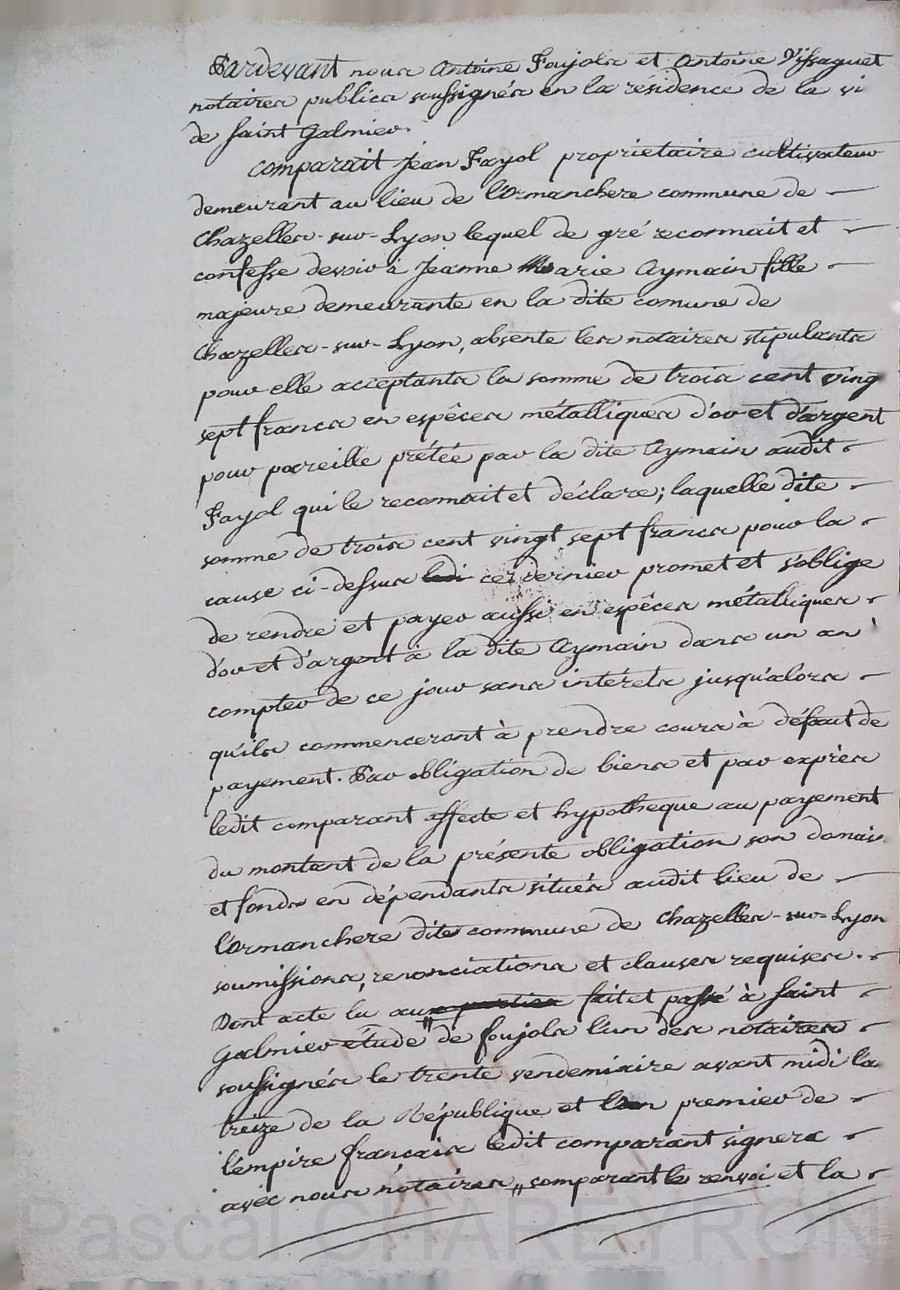 Pardevant nous Antoine Foujols et Antoine Vissaguet
notaires publics soussignés en la résidence de la vi
de saint Galmier.
comparait Jean Fayol proprietaire cultivateur
demeurant au lieu de l'ormanchere commune de
Chazelles-sur-Lyon lequel de gré reconnait et
confesse devoir à Jeanne Marie Aymain fille
majeure demeurante en la dite comune de
Chazelles-sur-Lyon, absente les notaires stipulants
pour elle acceptants la somme de trois cent ving
sept francs en espêces métalliques d'or et d'argent
pour pareille prétée par la dite Aymain audit
Fayol qui le reconnait et déclare; laquelle dite
somme de trois cent vingt sept francs pour la
cause ci-dessus ce dernier promet et s'oblige
de rendre et payer aussi en espêces métalliques
d'or et d'argent à la dite Aymain dans un an
compter de ce jour sans intérets jusqu'alors
qu'ils commenceront à prendre cours à défaut de
payement. Par obligation de biens et par exprès
ledit comparant affecte et hypotheque au payement
du montant de la présente obligation son domai
et fonds en dépendants situés audit lieu de
l'ormanchere dite commune de Chazelles-sur-Lyon
soumissions, renonciations et clauses requises.
Dont acte lu au fait et passé à saint
Galmier étude de foujols l'un des notaires
soussignés le trente vendemiaire avant midi l'a
treize de la République et premier de
l'empire français ledit comparant signera
avec nous notaires " comparant le renvoi et la
Pascal CHAREYRON